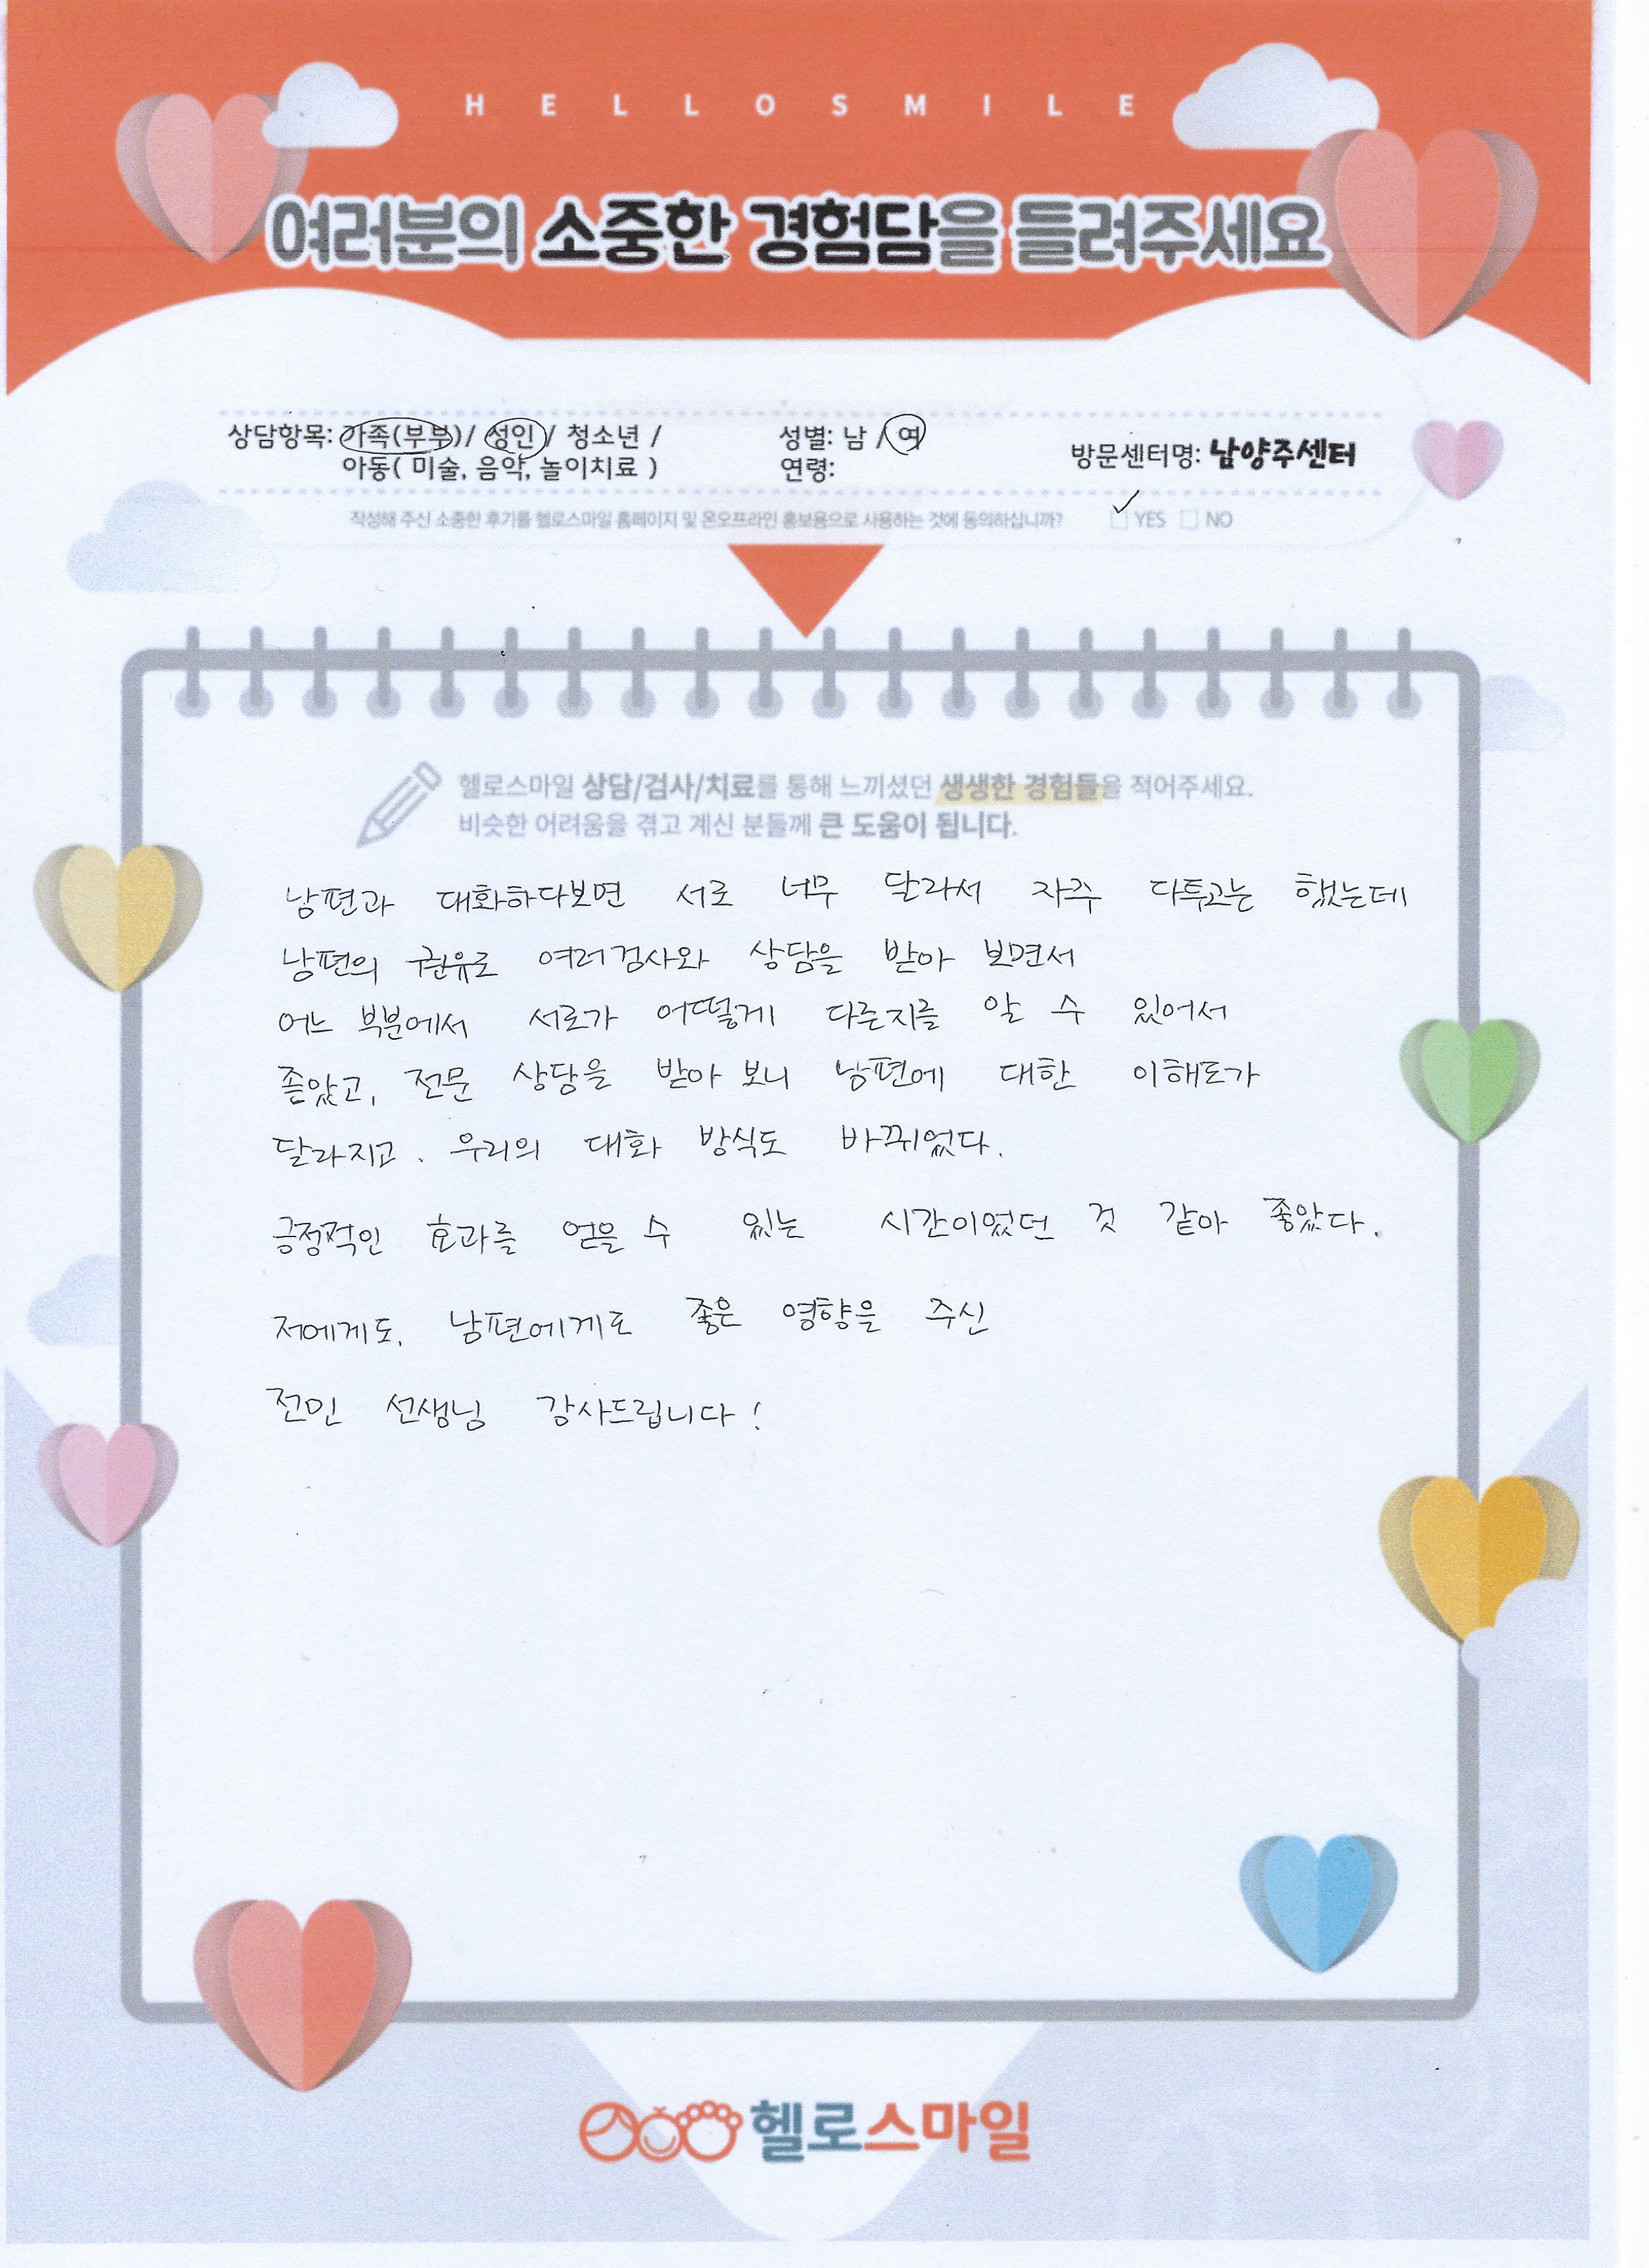 HELLOSMILE
여러분의 소중한 경험담을 들려주세요
상담항목: 가족(부부)/ 성인 / 청소년 /
아동( 미술, 음악, 놀이치료 )
성별: 남 / 여
연령:
방문센터명: 남양주센터
작성해 주신 소중한 후기를 헬로스마일 홈페이지 및 온오프라인 홍보용으로 사용하는 것에 동의하십니까? ✓ YES □ NO
헬로스마일 상담/검사/치료를 통해 느끼셨던 생생한 경험들을 적어주세요.
비슷한 어려움을 겪고 계신 분들께 큰 도움이 됩니다.
남편과 대화하다보면 서로 너무 달라서 자주 다투고는 했는데
남편의 권유로 여러검사와 상담을 받아 보면서
어느 부분에서 서로가 어떻게 다른지를 알 수 있어서
좋았고, 전문 상담을 받아 보니 남편에 대한 이해도가
달라지고. 우리의 대화 방식도 바뀌었다.
긍정적인 효과를 얻을 수 있는 시간이었던 것 같아 좋았다.
저에게도, 남편에게도 좋은 영향을 주신
전민 선생님 감사드립니다!
헬로스마일